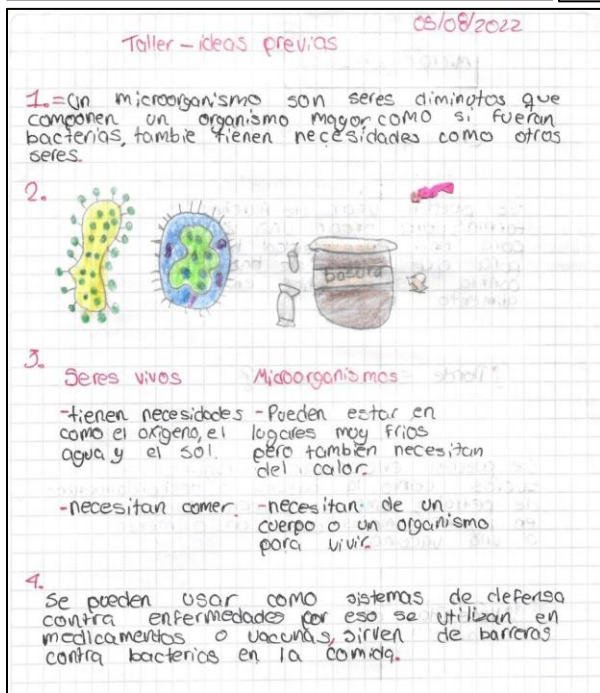 05/08/2022
Taller - ideas previas
1.= Un microorganismo son seres diminutos que
componen un organismo mayor como si fueran
bacterias, tambie tienen necesidades como otros
seres.
2.
basura
3.
Seres vivos Microorganismos
-tienen necesidades -Pueden estar en
como el oxigeno, el lugares muy frios
agua y el sol. pero también necesitan
del calor.
-necesitan comer. -necesitan de un
cuerpo o un organismo
para vivir.
4.
Se pueden usar como sistemas de defensa
contra enfermedades por eso se utilizan en
medicamentos o vacunas, sirven de barreras
contra bacterias en la comida.